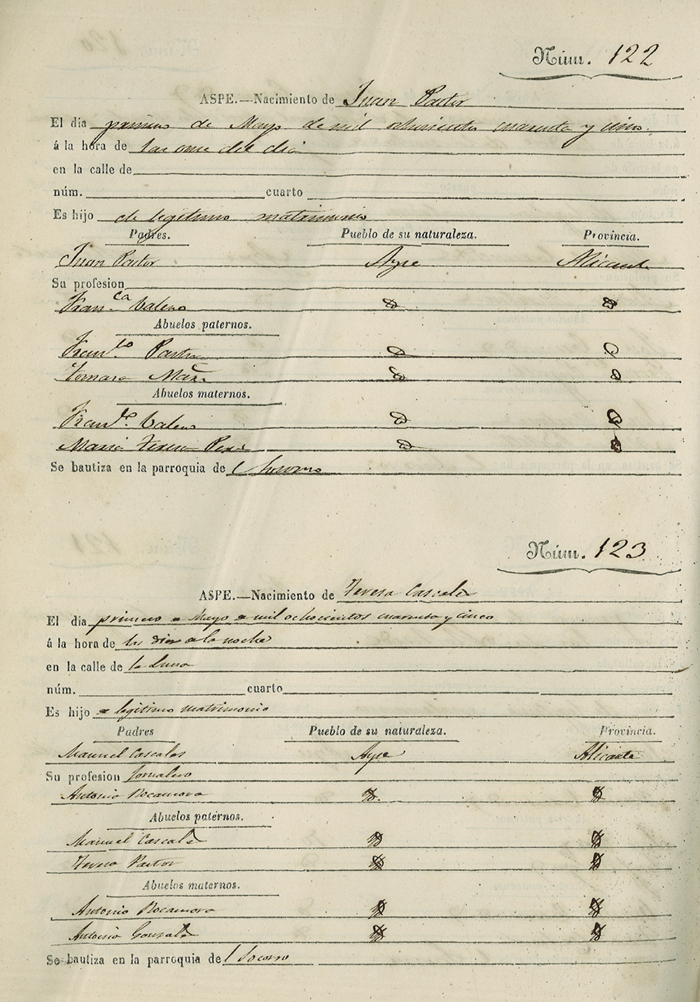 Núm. 122
ASPE.—Nacimiento de Juan Pastor
El dia primero de Mayo de mil ochocientos cuarenta y cinco
á la hora de las once del dia
en la calle de
núm. cuarto
Es hijo de legitimo matrimonio
Padres. Pueblo de su naturaleza. Provincia.
Juan Pastor Aspe Alicante
Su profesion
Fran.ca
Abuelos paternos.
Fran.co Pastor
Abuelos maternos.
Fran.co
Maria Teresa
Se bautiza en la parroquia de
Núm. 123
ASPE.—Nacimiento de Teresa Cascales
El dia primero de Mayo de mil ochocientos cuarenta y cinco
á la hora de las diez de la noche
en la calle de la Luna
núm. cuarto
Es hijo de legitimo matrimonio
Padres Pueblo de su naturaleza. Provincia.
Manuel Cascales Aspe Alicante
Su profesion Jornalero
Antonia Rocamora
Abuelos paternos.
Manuel Cascales
Teresa Pastor
Abuelos maternos.
Antonio Rocamora
Antonia Gonzalez
Se bautiza en la parroquia del Socorro